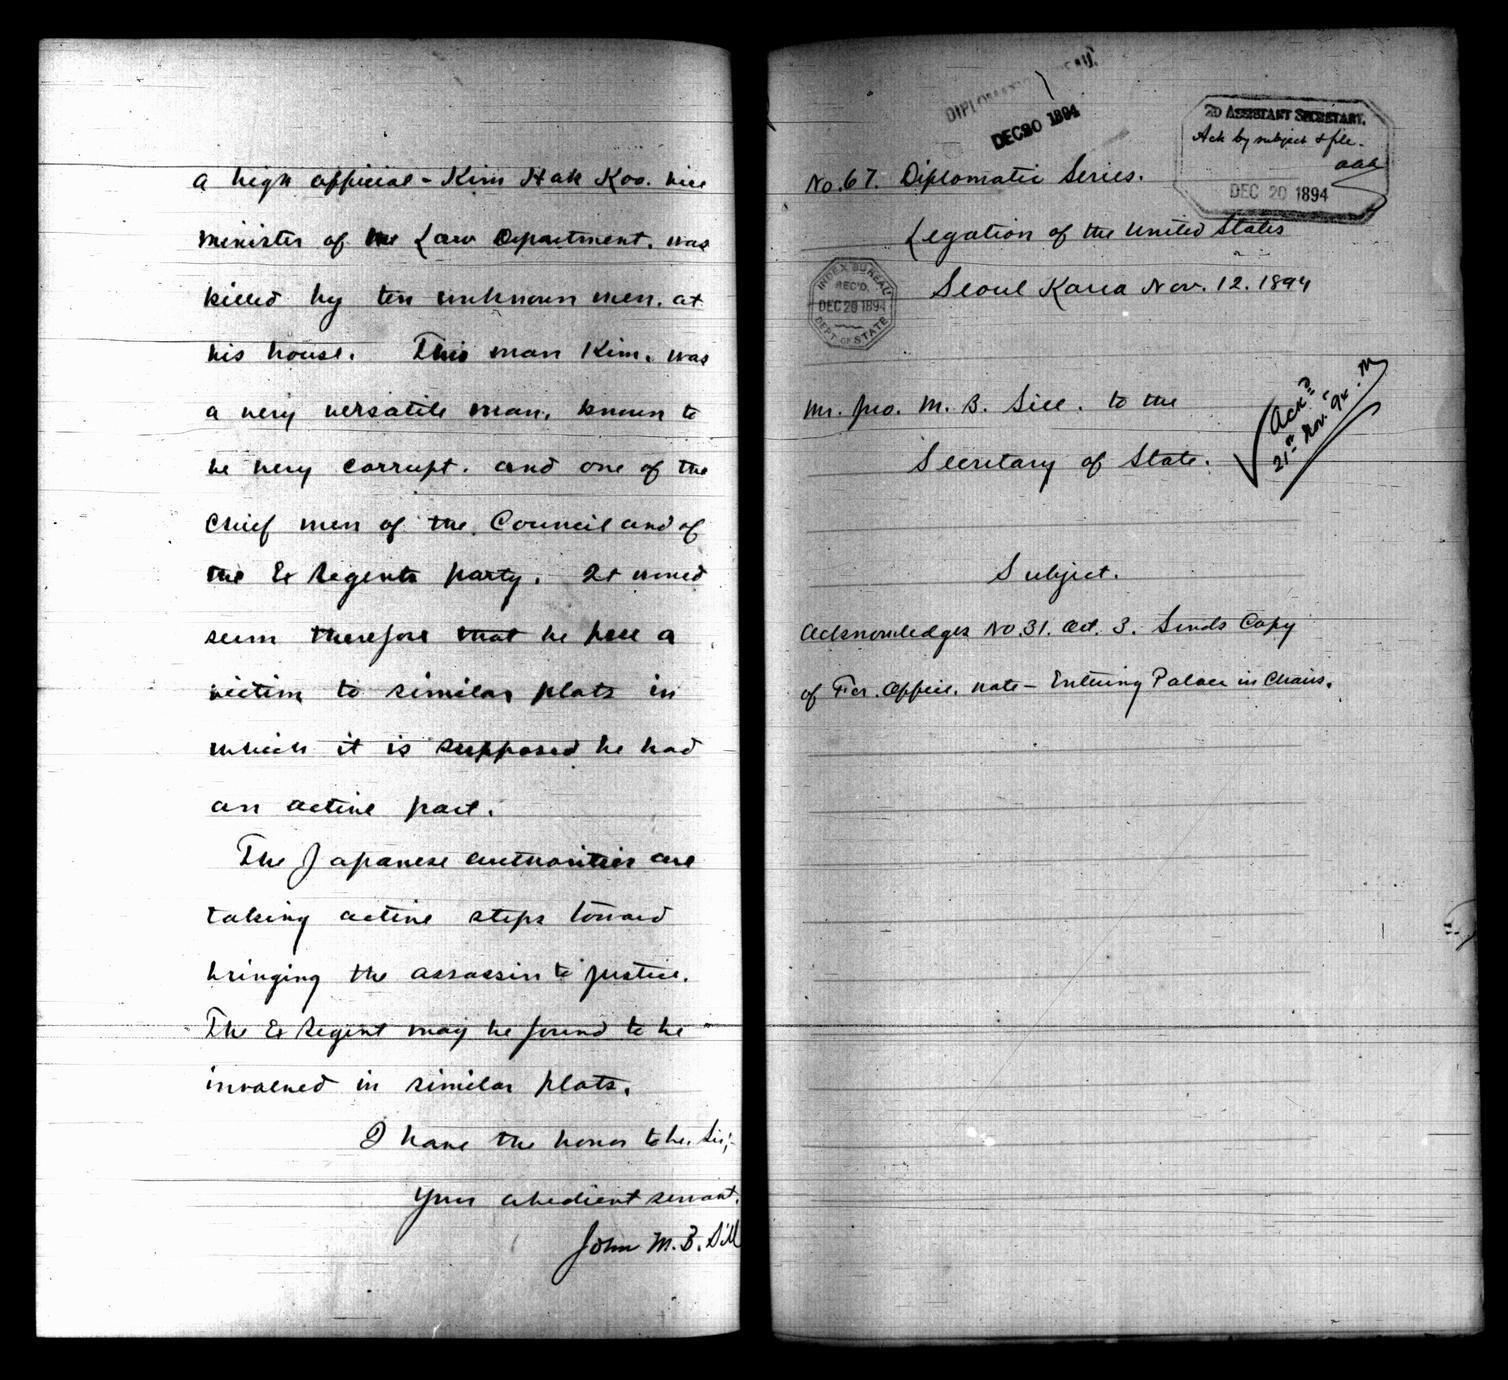 a high official - Kim Hak Koo. vice
minister of the Law Department. was
killed by ten unknown men. at
his house. This man Kim. was
a very versatile man. known to
be very corrupt. and one of the
chief men of the Council and of
the Ex Regents party. It would
seem therefore that he fell a
victim to similar plots in
which it is supposed he had
an active part.
The Japanese authorities are
taking active steps toward
bringing the assassin to justice.
The Ex Regent may be found to be
involved in similar plots.
I have the honor to be. Sir;-
Your obedient servant.
John M. B. Sill
DIPLOMATIC BUREAU.
DEC 20 1894
2D ASSISTANT SECRETARY.
Ack by subject & file -
aaa
DEC 20 1894
No. 67. Diplomatic Series.
Legation of the United States
Seoul Korea Nov. 12. 1894
INDEX BUREAU
REC'D.
DEC 20 1894
DEPT. OF STATE
Mr. Jno. M. B. Sill. to the
Secretary of State.
Ack'd
Subject.
Acknowledges No. 31. Oct. 3. Sends Copy
of For. Office. note - Entering Palace in Chairs.